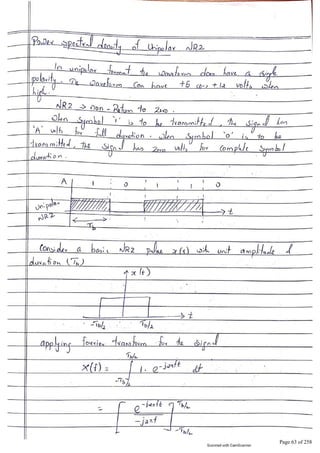 Power spectral density of Unipolar NRZ
In unipolar format the waveform does have a single
polarity. The waveform can have +5 or +12 volts when
high.
NRZ → Non-Return to Zero.
when Symbol '1' is to be transmitted, the signal has
'A' volts for full duration. when Symbol '0' is to be
transmitted, the signal has zero volts for complete Symbol
duration.
A 1 0 1 1 0
Unipolar
NRZ
→t
Tb
Consider a basic NRZ pulse x(t) with unit amplitude &
duration (Tb)
x(t)
-Tb/2 Tb/2 →t
applying Fourier transform for the signal
Tb/2
X(f) = ∫ 1. e^-j2πft dt
-Tb/2
= [ e^-j2πft / -j2πf ] Tb/2
-Tb/2
Scanned with CamScanner
Page 63 of 258